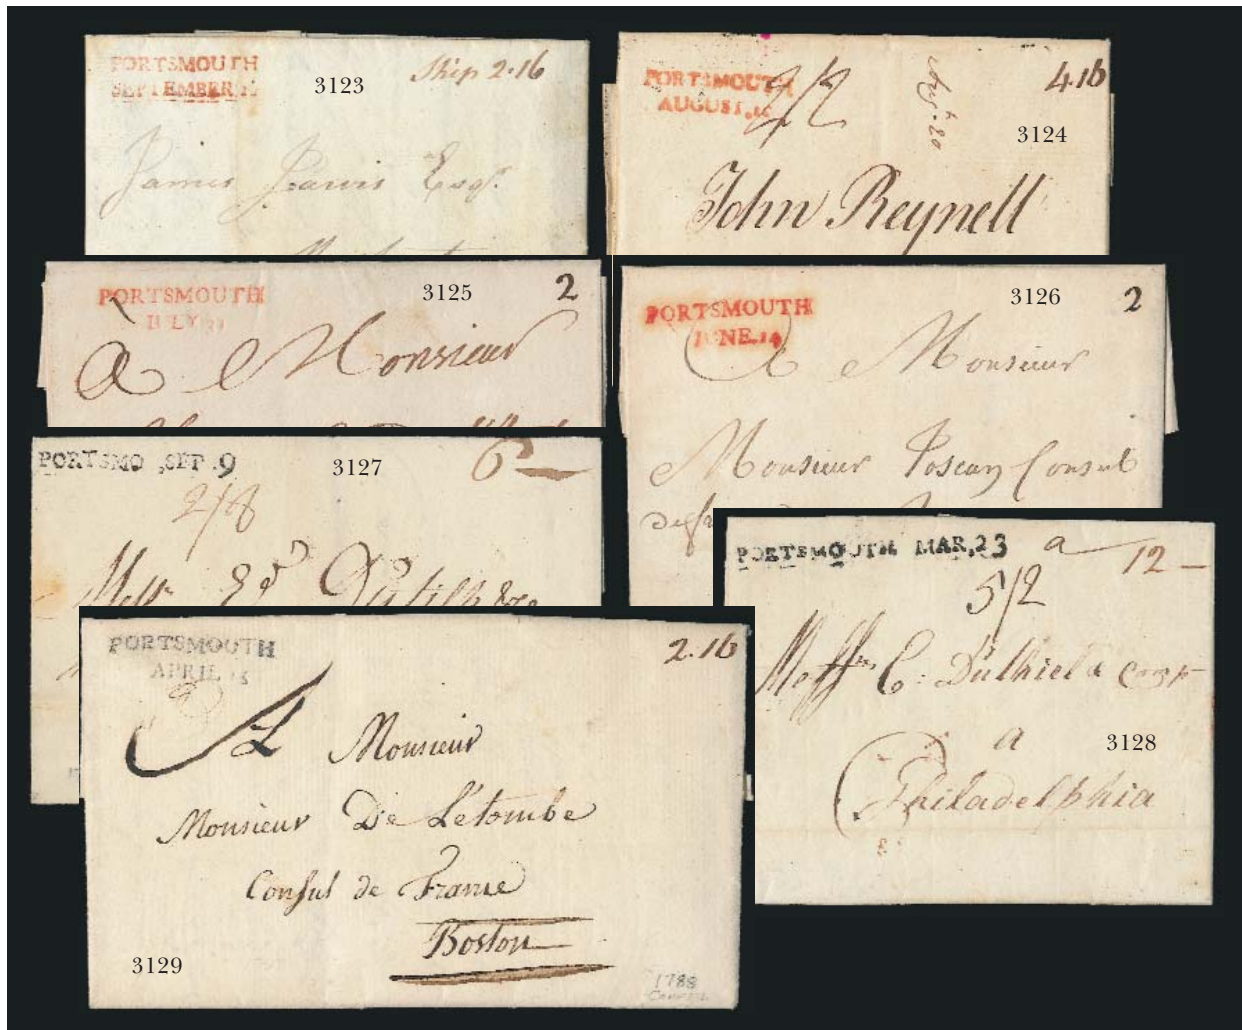 PORTSMOUTH
SEPTEMBER
3123
Ship 2.16
James Jarvis Esqr.
PORTSMOUTH
AUGUST.
2/2
Augt. 20
4.16
3124
John Reynell
PORTSMOUTH
JULY
3125
2
A Monsieur
PORTSMOUTH
JUNE.14
3126
2
A Monsieur
Monsieur Toscan Consul
PORTSMO ,SEP .9
3127
6
2/8
Messrs Ed
PORTSMOUTH MAR,23
a
12
5/2
Messrs C: Duthiel & comp
a
3128
Philadelphia
PORTSMOUTH
APRIL
2.16
A Monsieur
Monsieur De Létombe
Consul de France
Boston
3129
1788